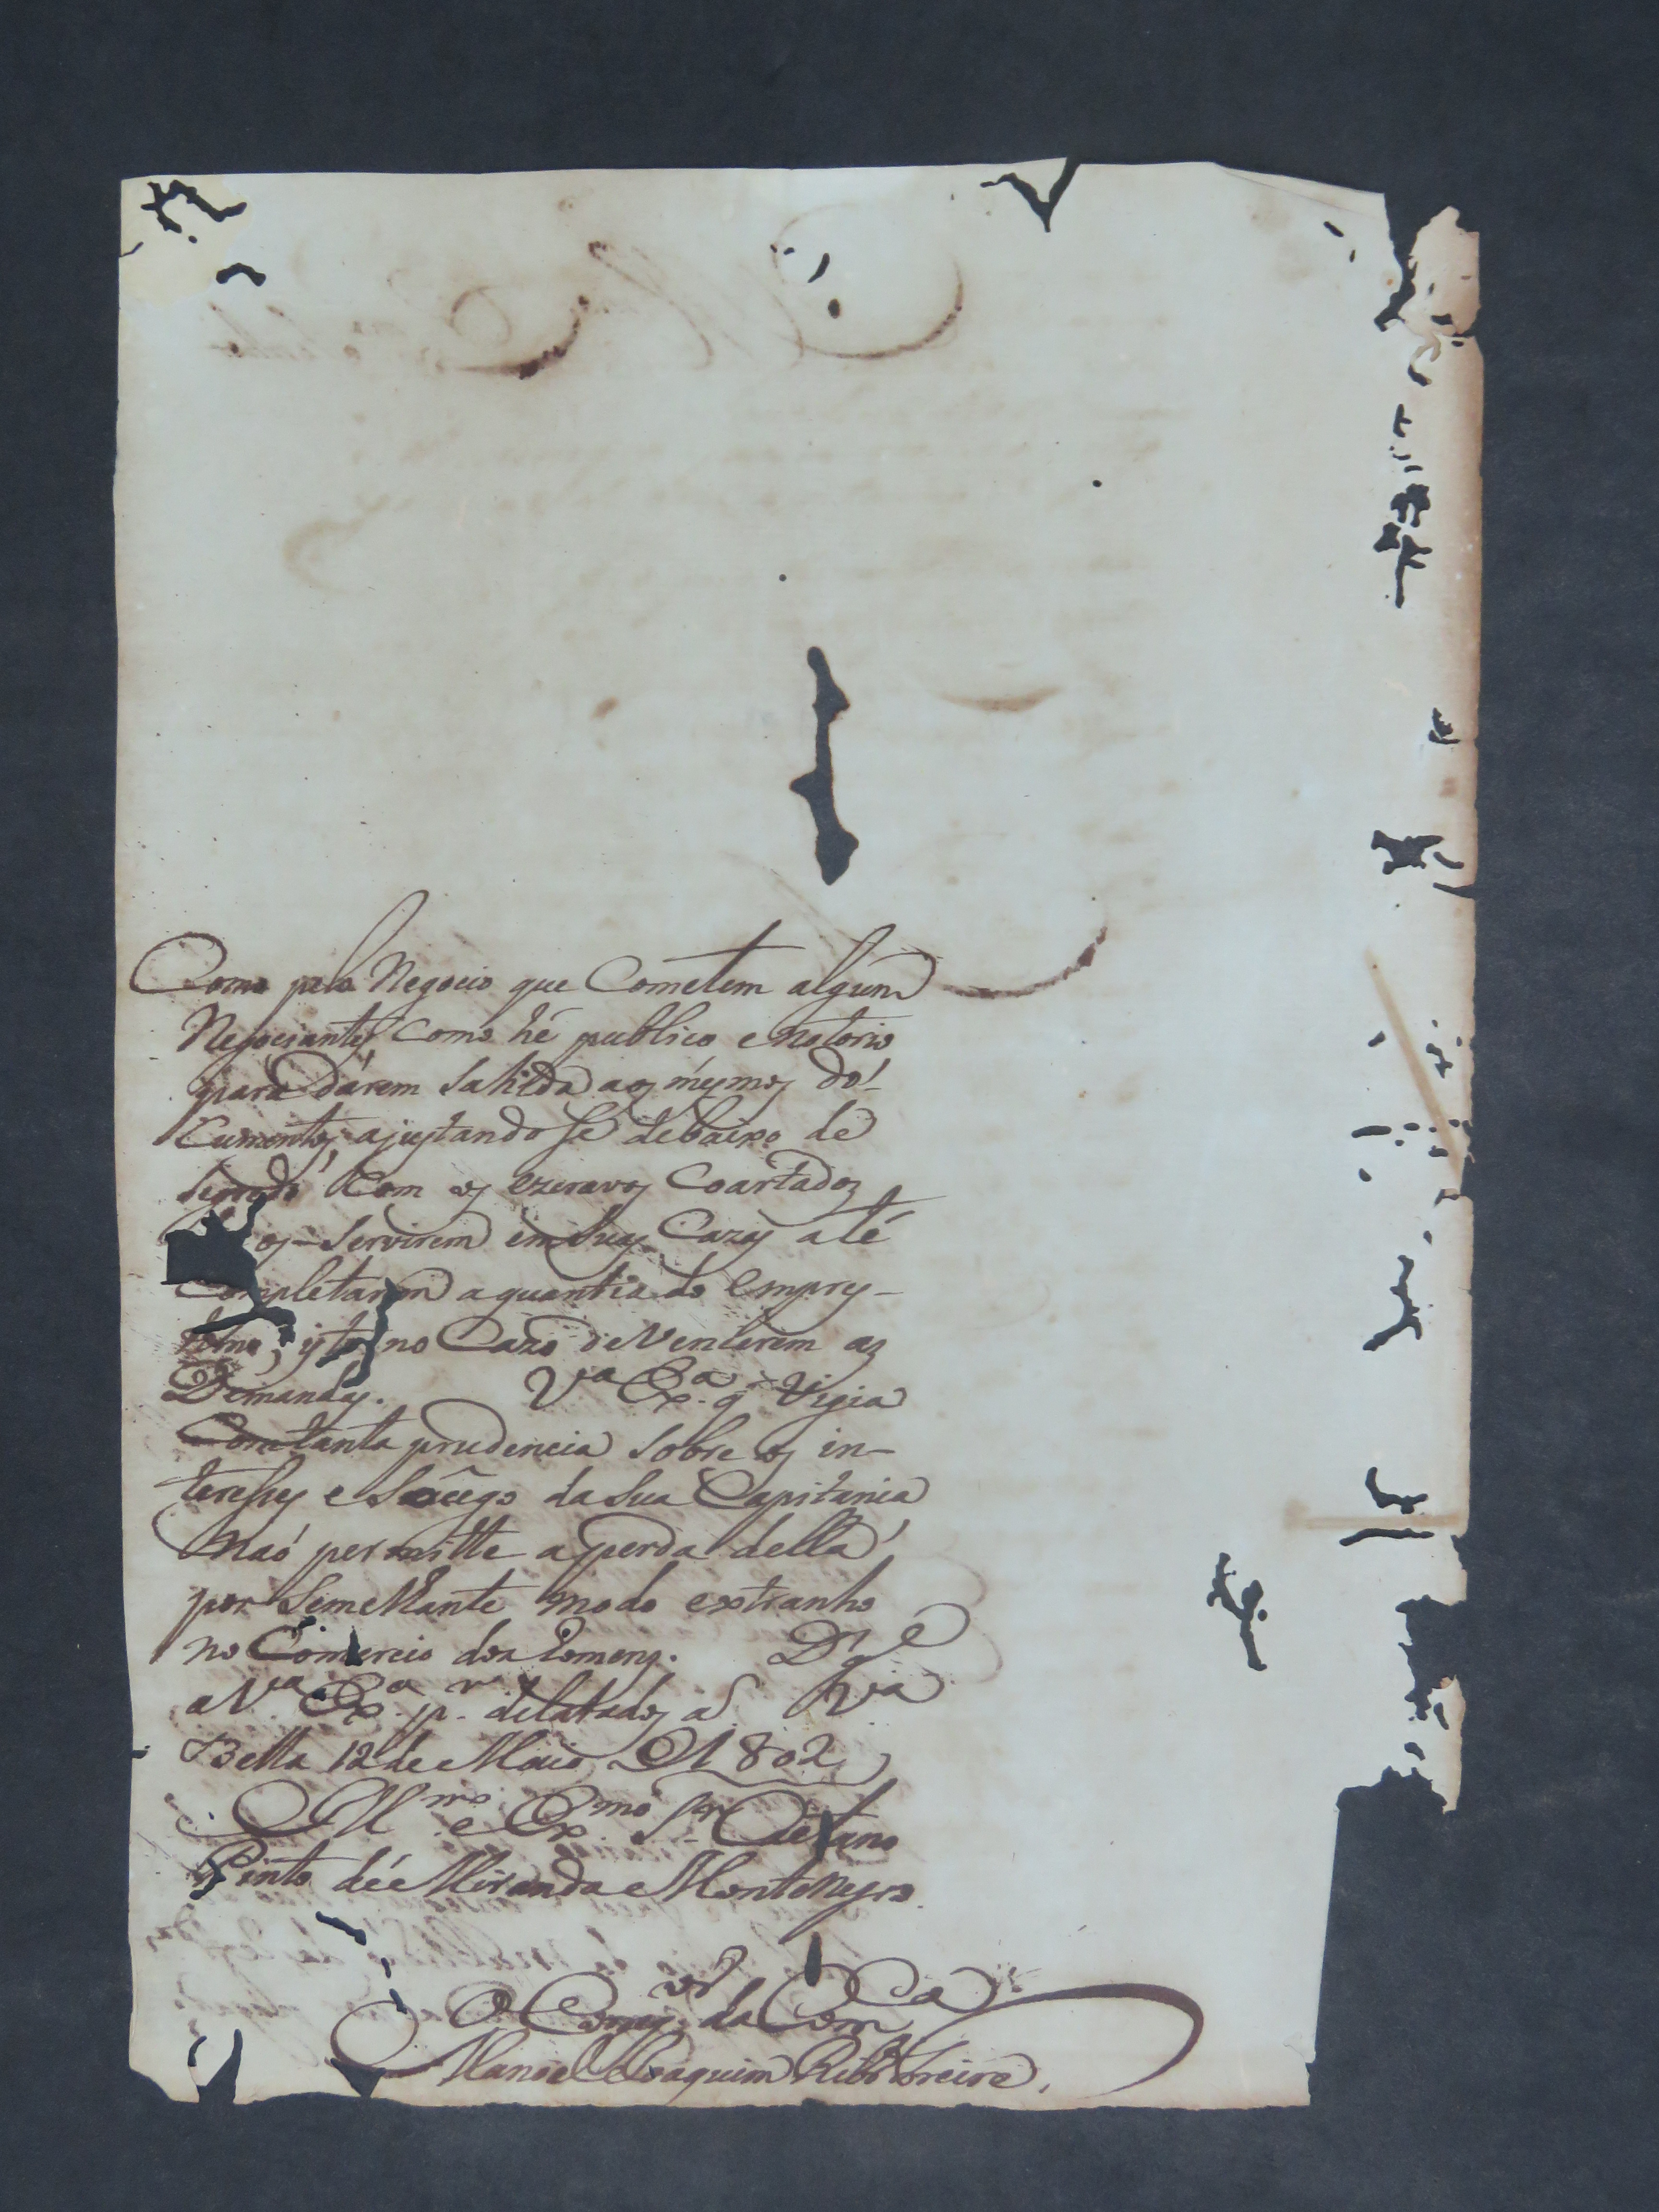 Como pelo Negocio que Cometem alguns
Negociantes Como hé publico e notorio
para dárem Sahida aos mesmos do-
cumentos, ajustando se debaixo de
segredo Com os escravos Coartados
os Servirem em Suas Cazas até
Completarem a quantia do Empres-
timo; isto no Cazo de Vencerem as
Demandas. Va. Exa. q.
Constante prudencia Sobre os in-
teresses e Socêgo da Sua Capitania
Naó permitte a perda della
por Semelhante modo extranho
no Comercio dos Homens. Ds. ge
a Va. Exa. pr. delatados as. Va
Bella 12 de Maio D 1802
Illmo. e Exmo. Snr. Caetano
Pinto dé Miranda Montenegro
O Comor. da Coma.
Manoel Joaquim Ribro. Freire.